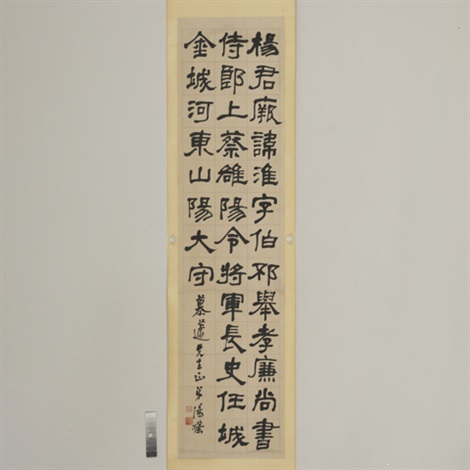 楊君厥諱淮字伯邳舉孝廉尚書
侍郎上蔡雒陽令將軍長史任城
金城河東山陽大守
慕蘧先生正弟湯滌